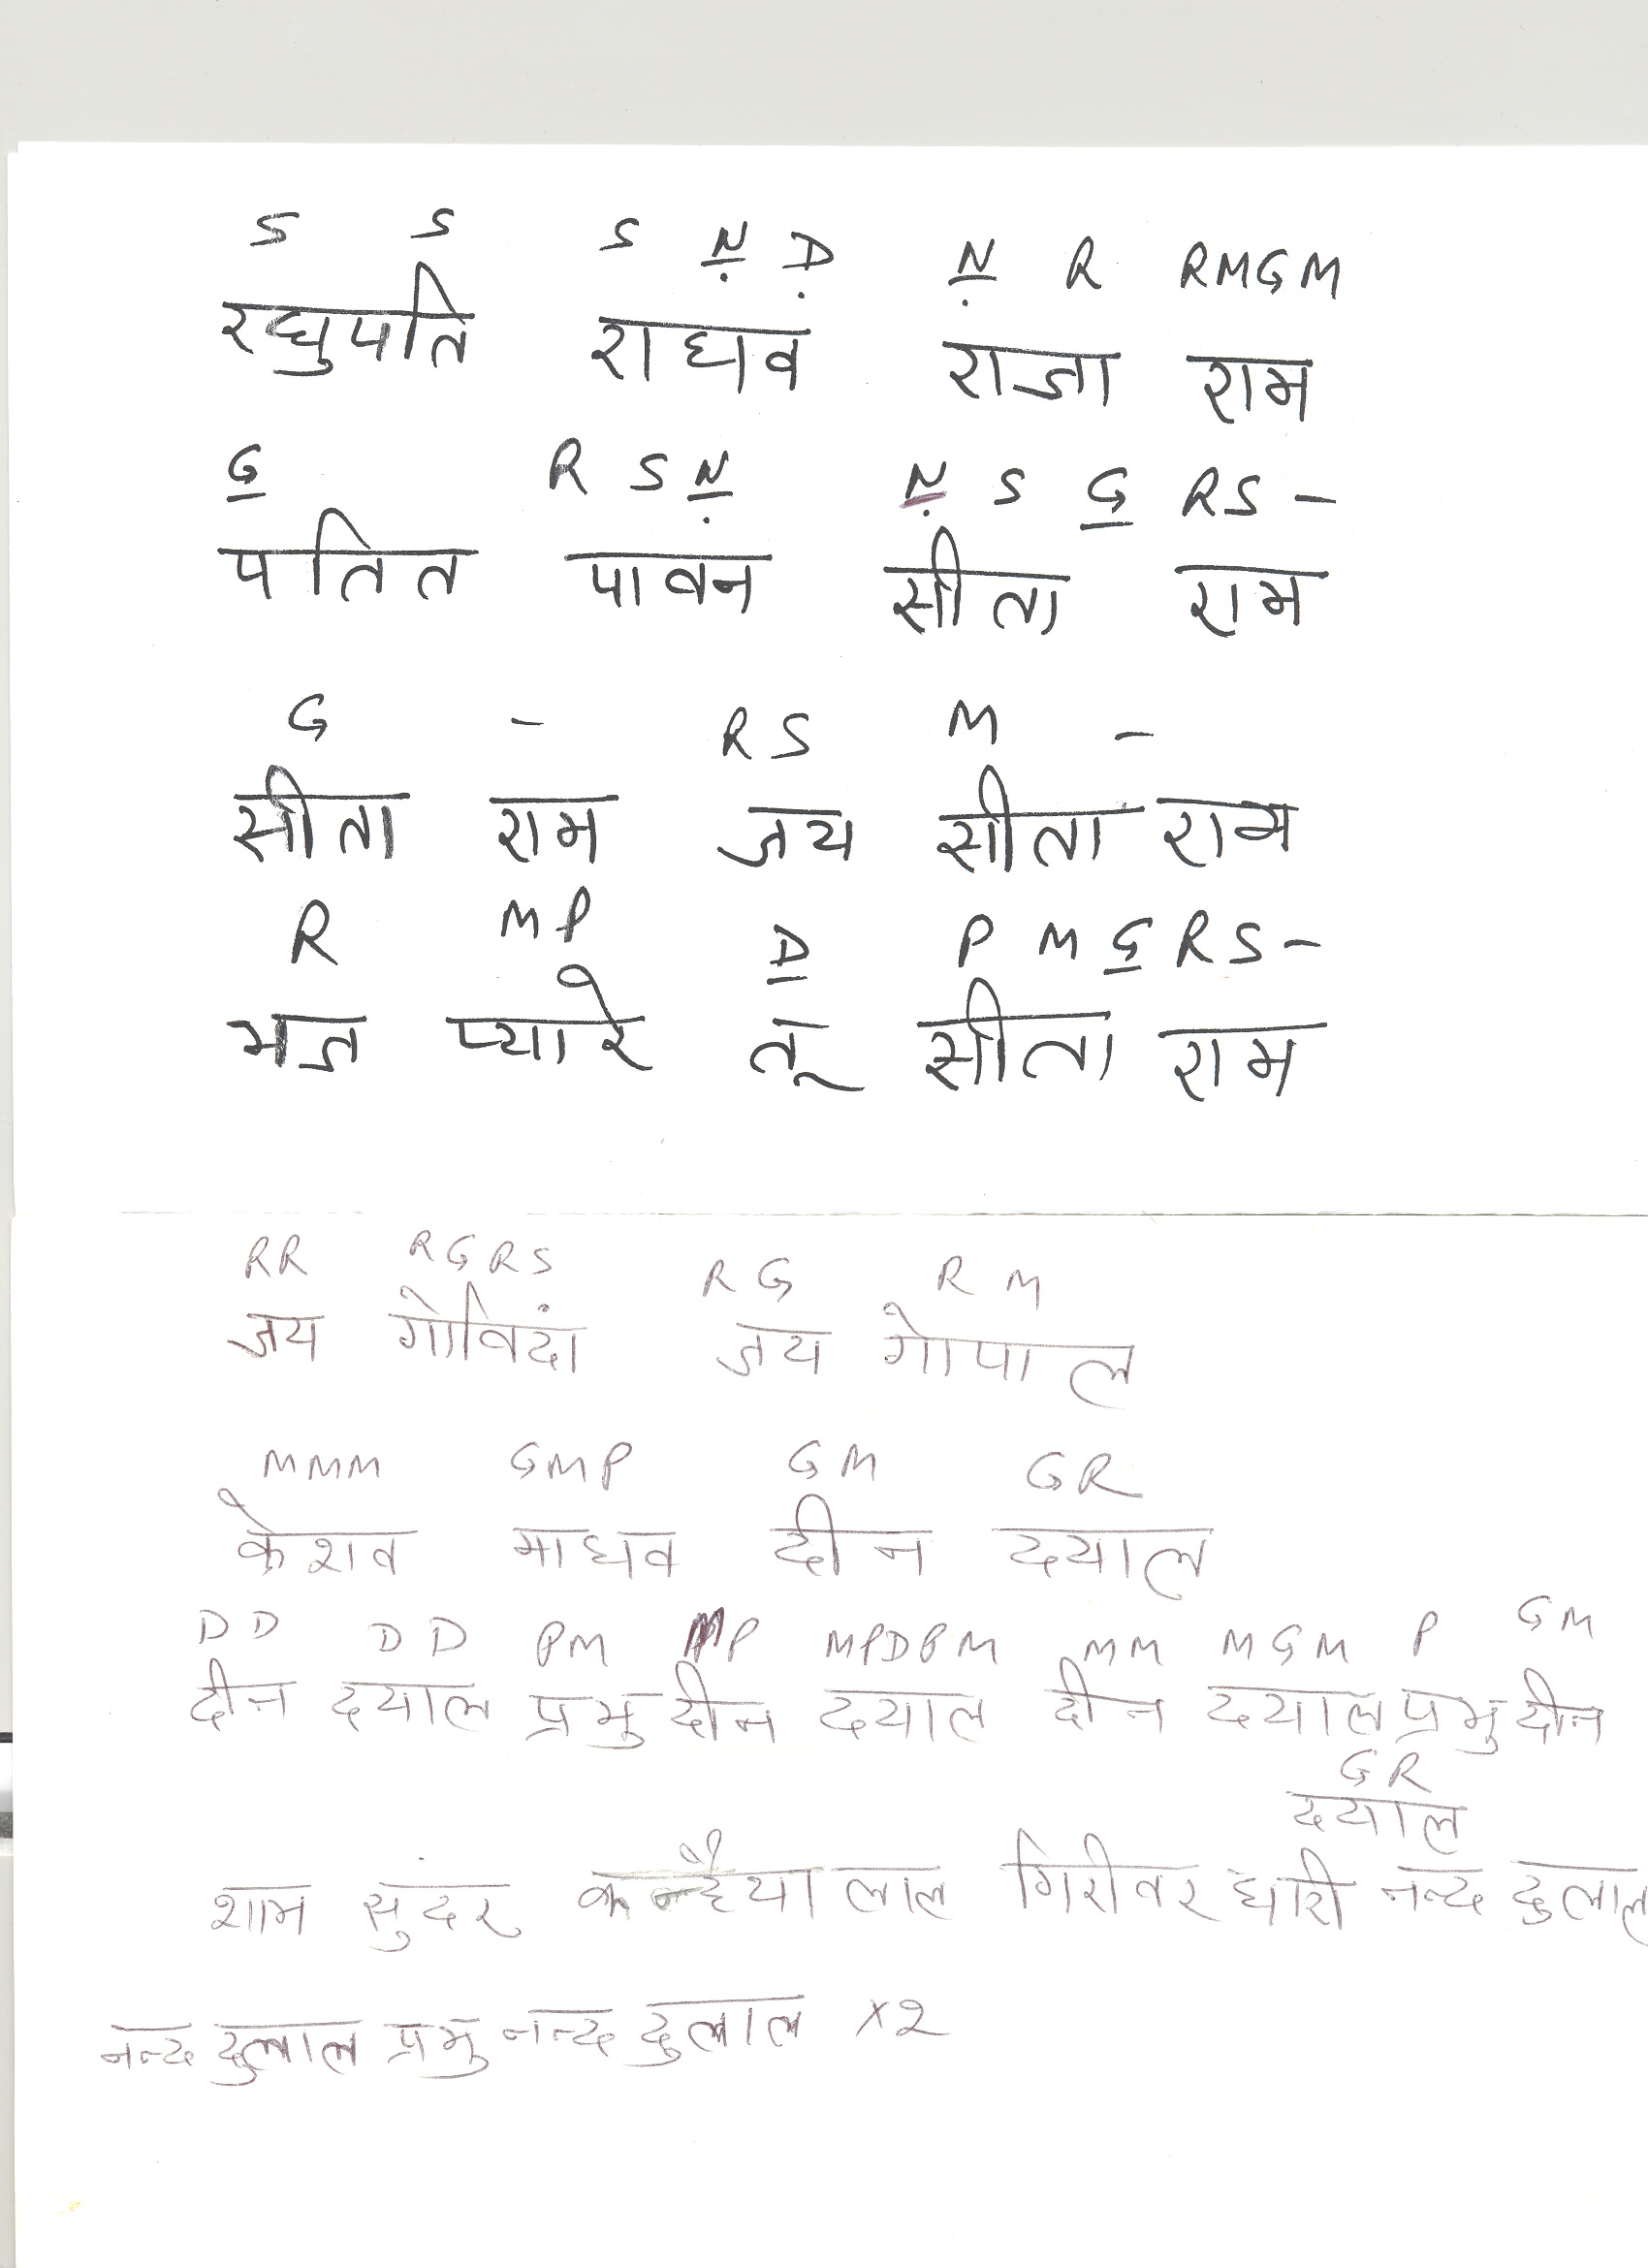 S S S Ṇ̲ Ḍ Ṇ̲ R RMGM
रघुपति राघव राजा राम
G̲ R S Ṇ̲ Ṇ̲ S G̲ RS –
पतित पावन सीता राम
G – RS M –
सीता राम जय सीता राम
R MP D̲ P M G̲ R S –
भज प्यारे तू सीता राम
RR RGRS RG R M
जय गोविंदा जय गोपाल
MMM GMP GM GR
केशव माधव दीन दयाल
DD DD PM MP MPDPM MM MGM P GM
दीन दयाल प्रभु दीन दयाल दीन दयाल प्रभु दीन
GR
दयाल
शाम सुंदर कन्हैया लाल गिरीवर धारी नन्द दुलाल
नन्द दुलाल प्रभु नन्द दुलाल x२